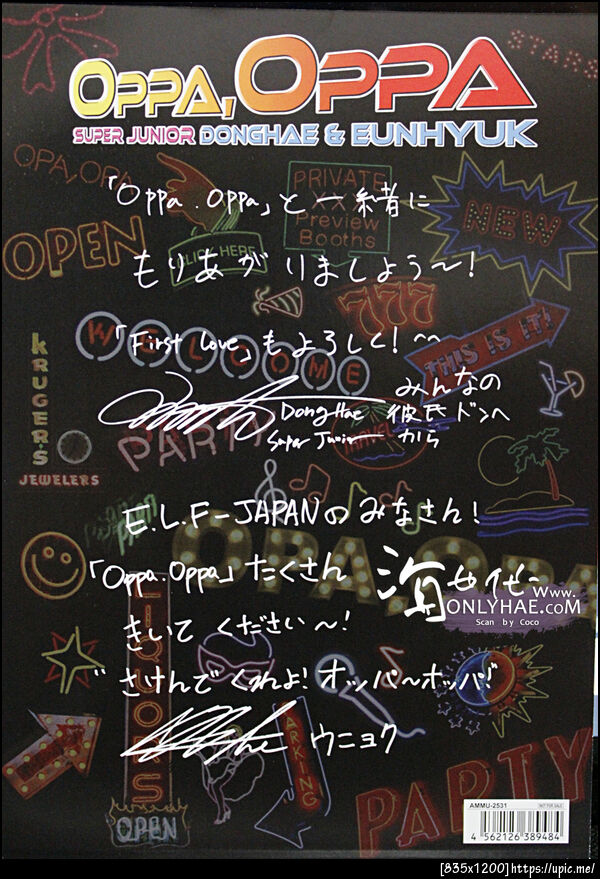 STARS
OPPA, OPPA
SUPER JUNIOR DONGHAE & EUNHYUK
OPA,OPA
PRIVATE
XXX
Preview
Booths
「Oppa.Oppa」と一緒に
OPEN
CLICK HERE
NEW
もりあがりましょう〜!
777
WELCOME
「First Love」もよろしく!^^
THIS IS IT!
KRUGERS
JEWELERS
みんなの
DongHae 彼氏ドンヘ
Super Junior から
PARTY
TRAVEL
E.L.F-JAPANのみなさん!
OPA,OPA
「Oppa.Oppa」たくさん
www.
ONLYHAE.COM
Scan by Coco
きいてください〜!
LIQUORS
"さけんでくれよ!オッパ〜オッパ!"
ウニョク
PARKING
PARTY
OPEN
AMMU-2531
NOT FOR SALE
4 562126 389484
[835x1200]https://upic.me/